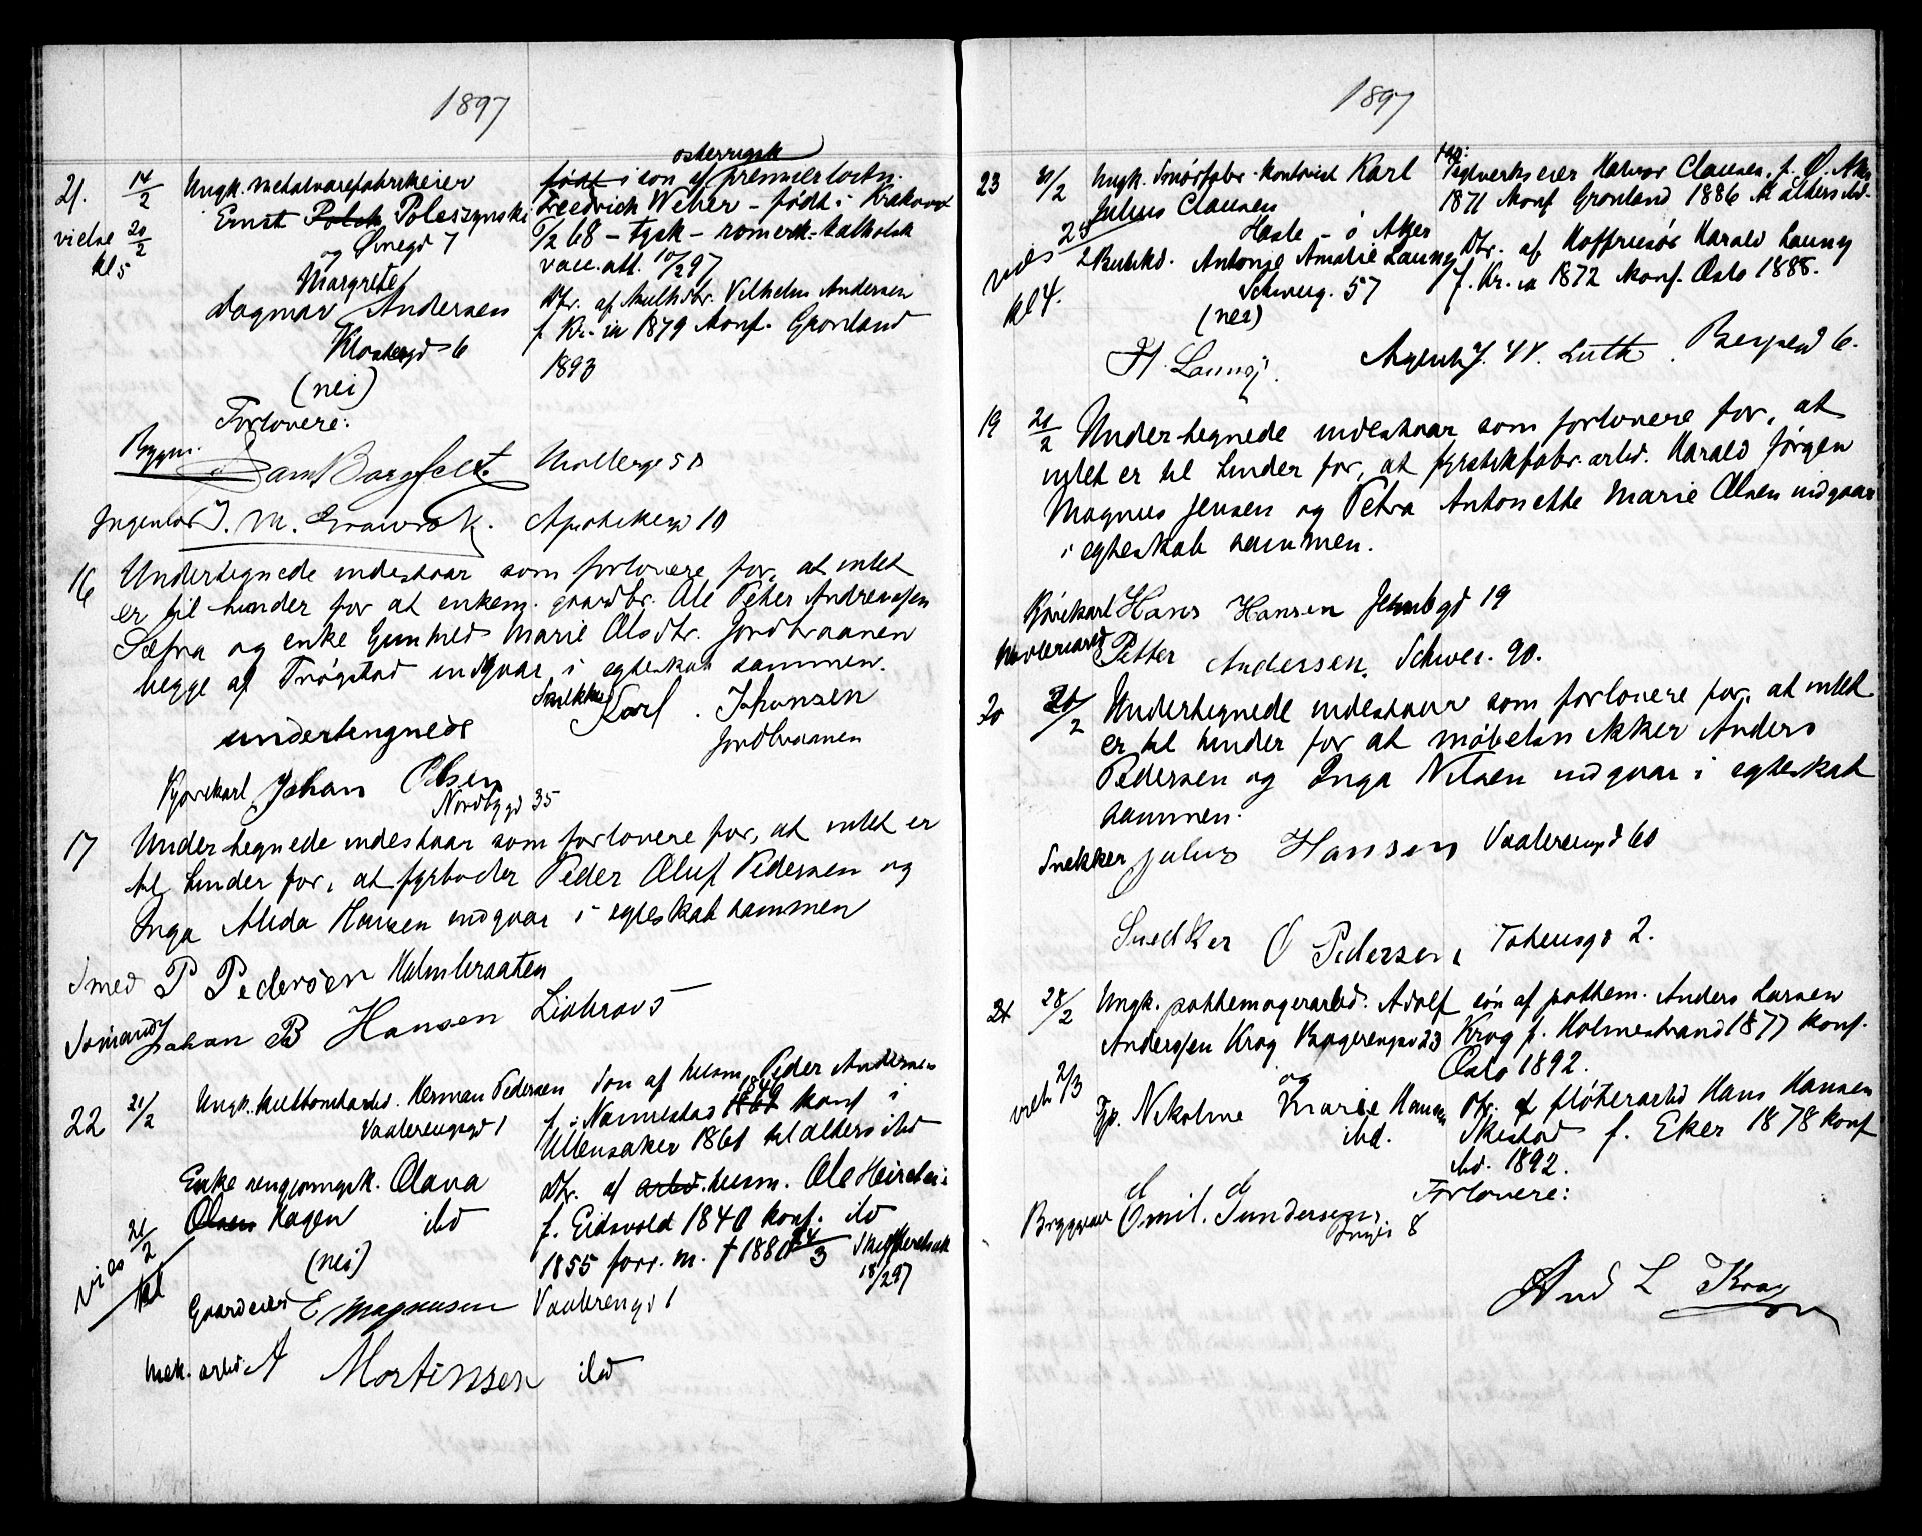 1897
21. 14/2 Ungk. metalvarefabrikeier
Ernst Poleszynski
Smegd 7
og
Margrete
Dagmar Andersen
Klostergd 6
(nei)
østerrigsk
født i son af premierløitn.
Freedrich Weber - født i Krakow
6/2 68 - tysk - romersk-katholsk
vacc. att. 10/2 97
Dtr. af Vilhelm Andersen
f. Kr.ia 1879 konf. Grønland
1893
vielse 20/2
kl 5
Forlovere:
Byggm.
Møllerg 50
Ingeniør J. M. Apothekergd 10
16 Undertegnede indestaar som forlovere for, at intet
er til hinder for at enkem. gaardbr. Ole Peter Andreassen
Sæfra og enke Gunhild Marie Olsdtr. Jordbraaenen
begge af Trøgstad indgaar i egteskab sammen.
undertegnede
Snekker Karl Johansen
Jordbraanen
Kjørekarl Johan Olsen
Nordbygd 35
17 Undertegnede indestaar som forlovere for, at intet er
til hinder for, at fyrbøder Peder Oluf Pedersen og
Inga Alida Hansen indgaar i egteskab sammen
Smed P Pedersen Holmbraaten
Sømand Johan B Hansen Liabro
22 21/2 Ungk. Herman Pedersen
Vaalerengegd 1
Son af husm. Peder Andersen
1846
f. i Nannestad konf i
Ullensaker 1861 til alders ibd
Enke rengjøringsk. Olava
Olsen Hagen ibd
(nei)
Dtr. af arbd. husm. Ole
f. Eidsvold 1840 konf. ibd
1855 forr. m. † 1880 24/3 Skifteretsatt
18/2 97
vies 21/2
kl
Gaardeier E Magnusen Vaalerengd 1
Mek. arbd. A Mortinsen ibd
1897
23 21/2 Ungk. Smørfabr. kontorist Karl
Julius Clausen
Hasle - ø Aker
Teglverkseier Halvor Clausen, f. Ø. Aker
1871 konf Grønland 1886 til alders ibd.
vies 25/2
kl 4.
Butikd. Antonie Amalie Launy
Schweig. 57
(nei)
Dtr. af Harald Launy
f. Kr.ia 1872 konf. Oslo 1888.
H. Launy. Agent Luth. Bergsgd 6.
19 21/2 Undertegnede indestaar som forlovere for, at
intet er til hinder for, at fyrstikfabr. arbd. Harald Jørgen
Magnus Jensen og Petra Antonette Marie Olsen indgaar
i egteskab sammen.
Kjørekarl Hans Hansen Jernbgd 19
Petter Andersen. Schwei. 90.
20 26/2 Undertegnede indestaar som forlovere for, at intet
er til hinder for at møbelsnekker Anders
Pedersen og Inga Nilsen indgaar i egteskab
sammen.
Snekker Julius Hansen Vaalerengd 60
Snedker O Pedersen, Tøiensgd 2.
24 28/2 Ungk. pottemagerarbd. Adolf
Anderssen Krog 23
søn af pottem. Anders Larsen
Krog f. Holmestrand 1877 konf.
Oslo 1892.
viet 2/3
og
Tjp. Nikoline Marie Hansen
ibd.
Dtr. af fløterarbd Hans Hansen
f. Eker 1878 konf
ibd. 1892.
Forlovere:
Bryggearb Emil. Gundersen,
8
And L Krog